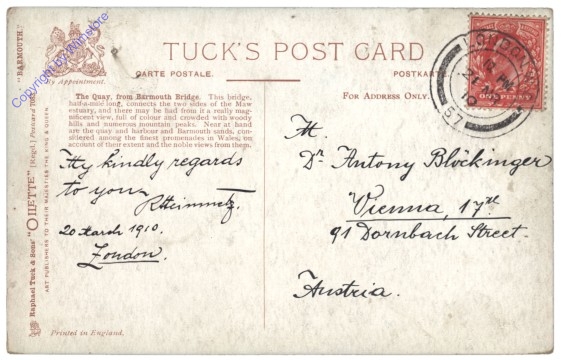 "BARMOUTH."
Copyright by Whitelore
By Appointment.
TUCK'S POST CARD
CARTE POSTALE.
POSTKARTE.
FOR ADDRESS ONLY.
The Quay, from Barmouth Bridge. This bridge,
half-a-mile long, connects the two sides of the Maw
estuary, and there may be had from it a really mag-
nificent view, full of colour and crowded with woody
hills and numerous mountain peaks. Near at hand
are the quay and harbour and Barmouth sands, con-
sidered among the finest promenades in Wales, on
account of their extent and the noble views from them.
My kindly regards
to you
20 March 1910.
London.
Raphael Tuck & Sons' "OILETTE" [Regd.] Postcard
ART PUBLISHERS TO THEIR MAJESTIES THE KING & QUEEN.
Printed in England.
LONDON
PM
10
57
ONE PENNY
M.
Dr. Antony Blöckinger
Vienna, 17th
91 Dornbach Street.
Austria.